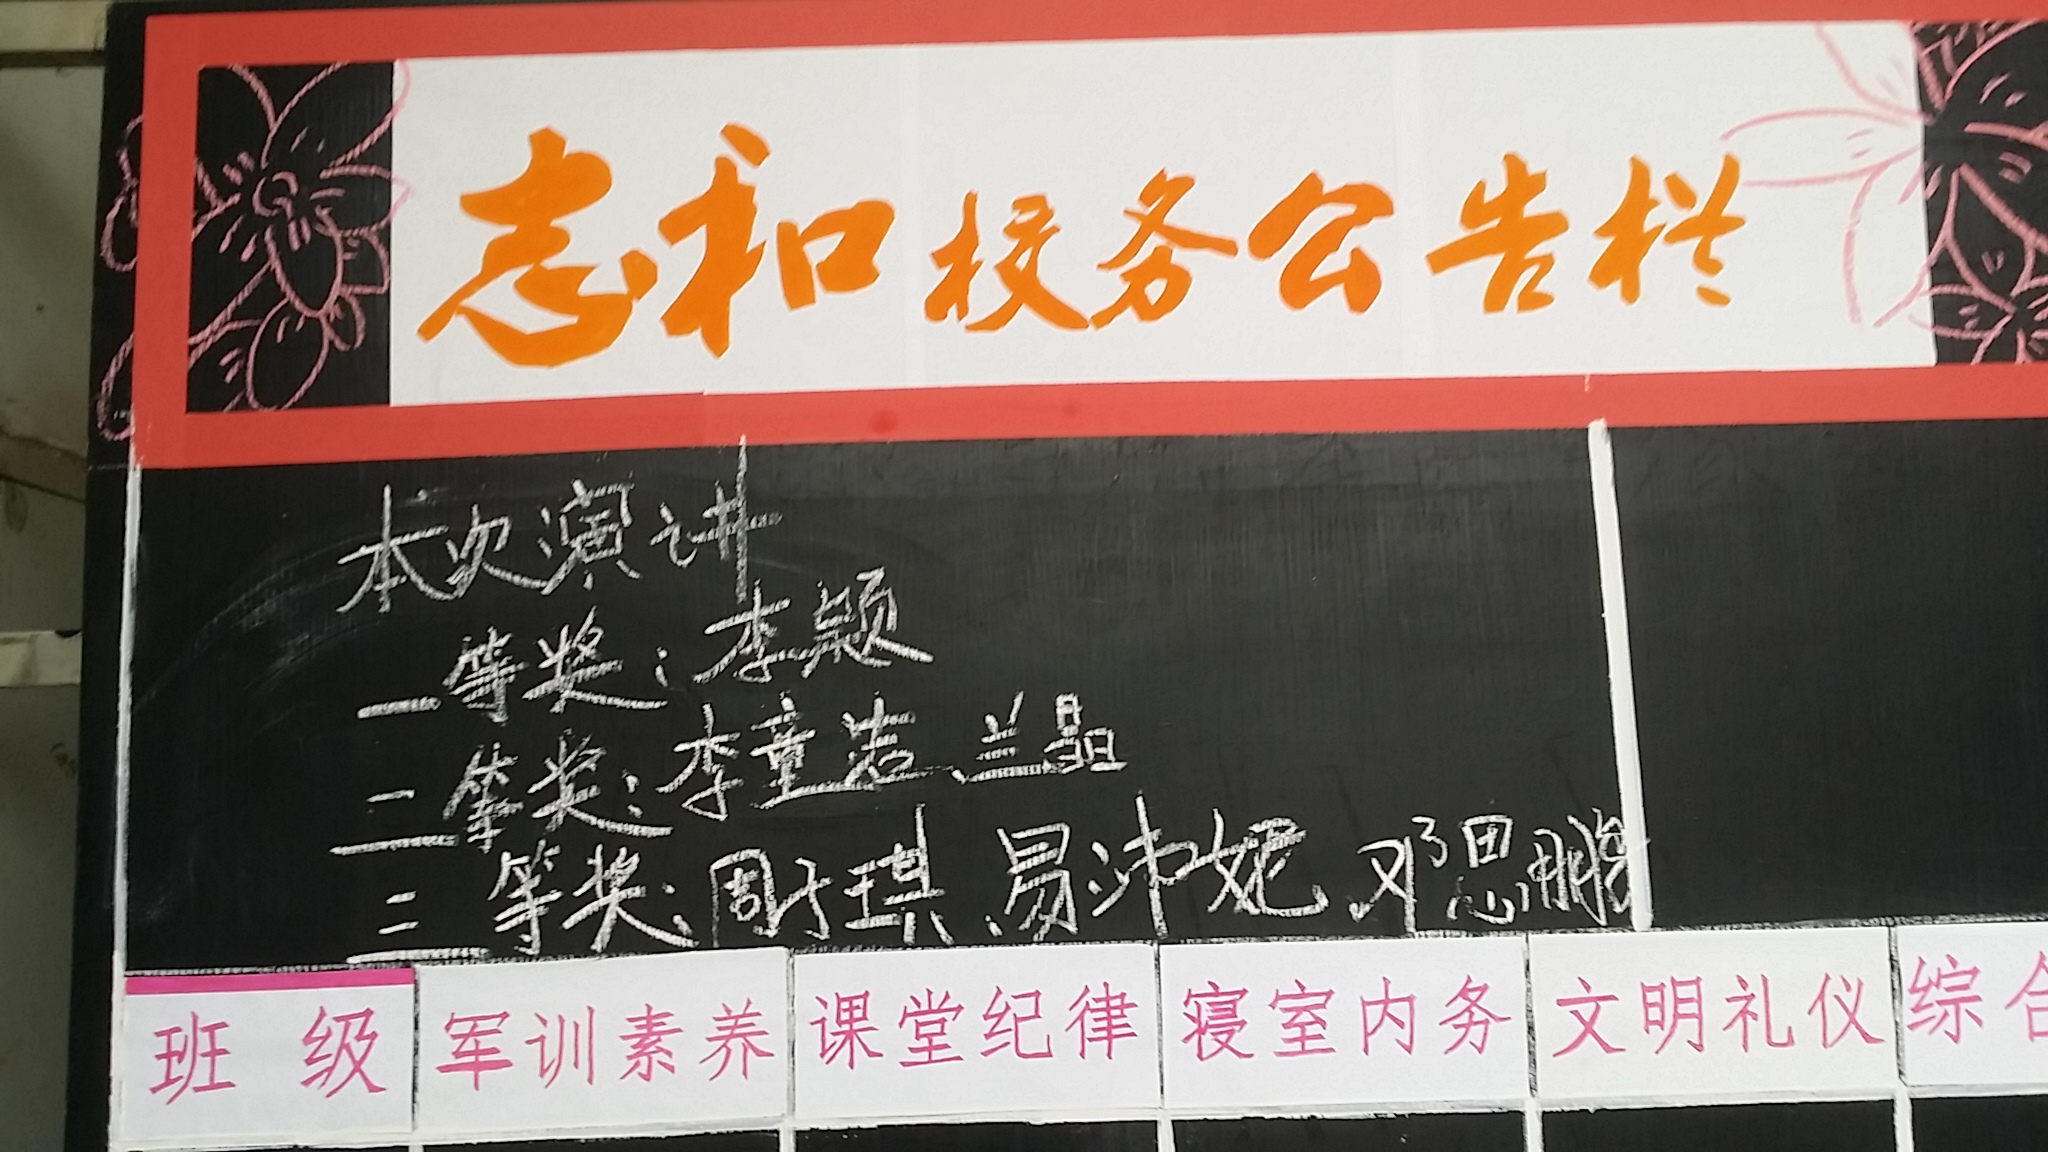 志和校务公告栏
本次演讲
一等奖:李颖
二等奖:李童岩 兰晶
三等奖:周于琪 易沛妮 邓思鹏
班级 军训素养 课堂纪律 寝室内务 文明礼仪 综合